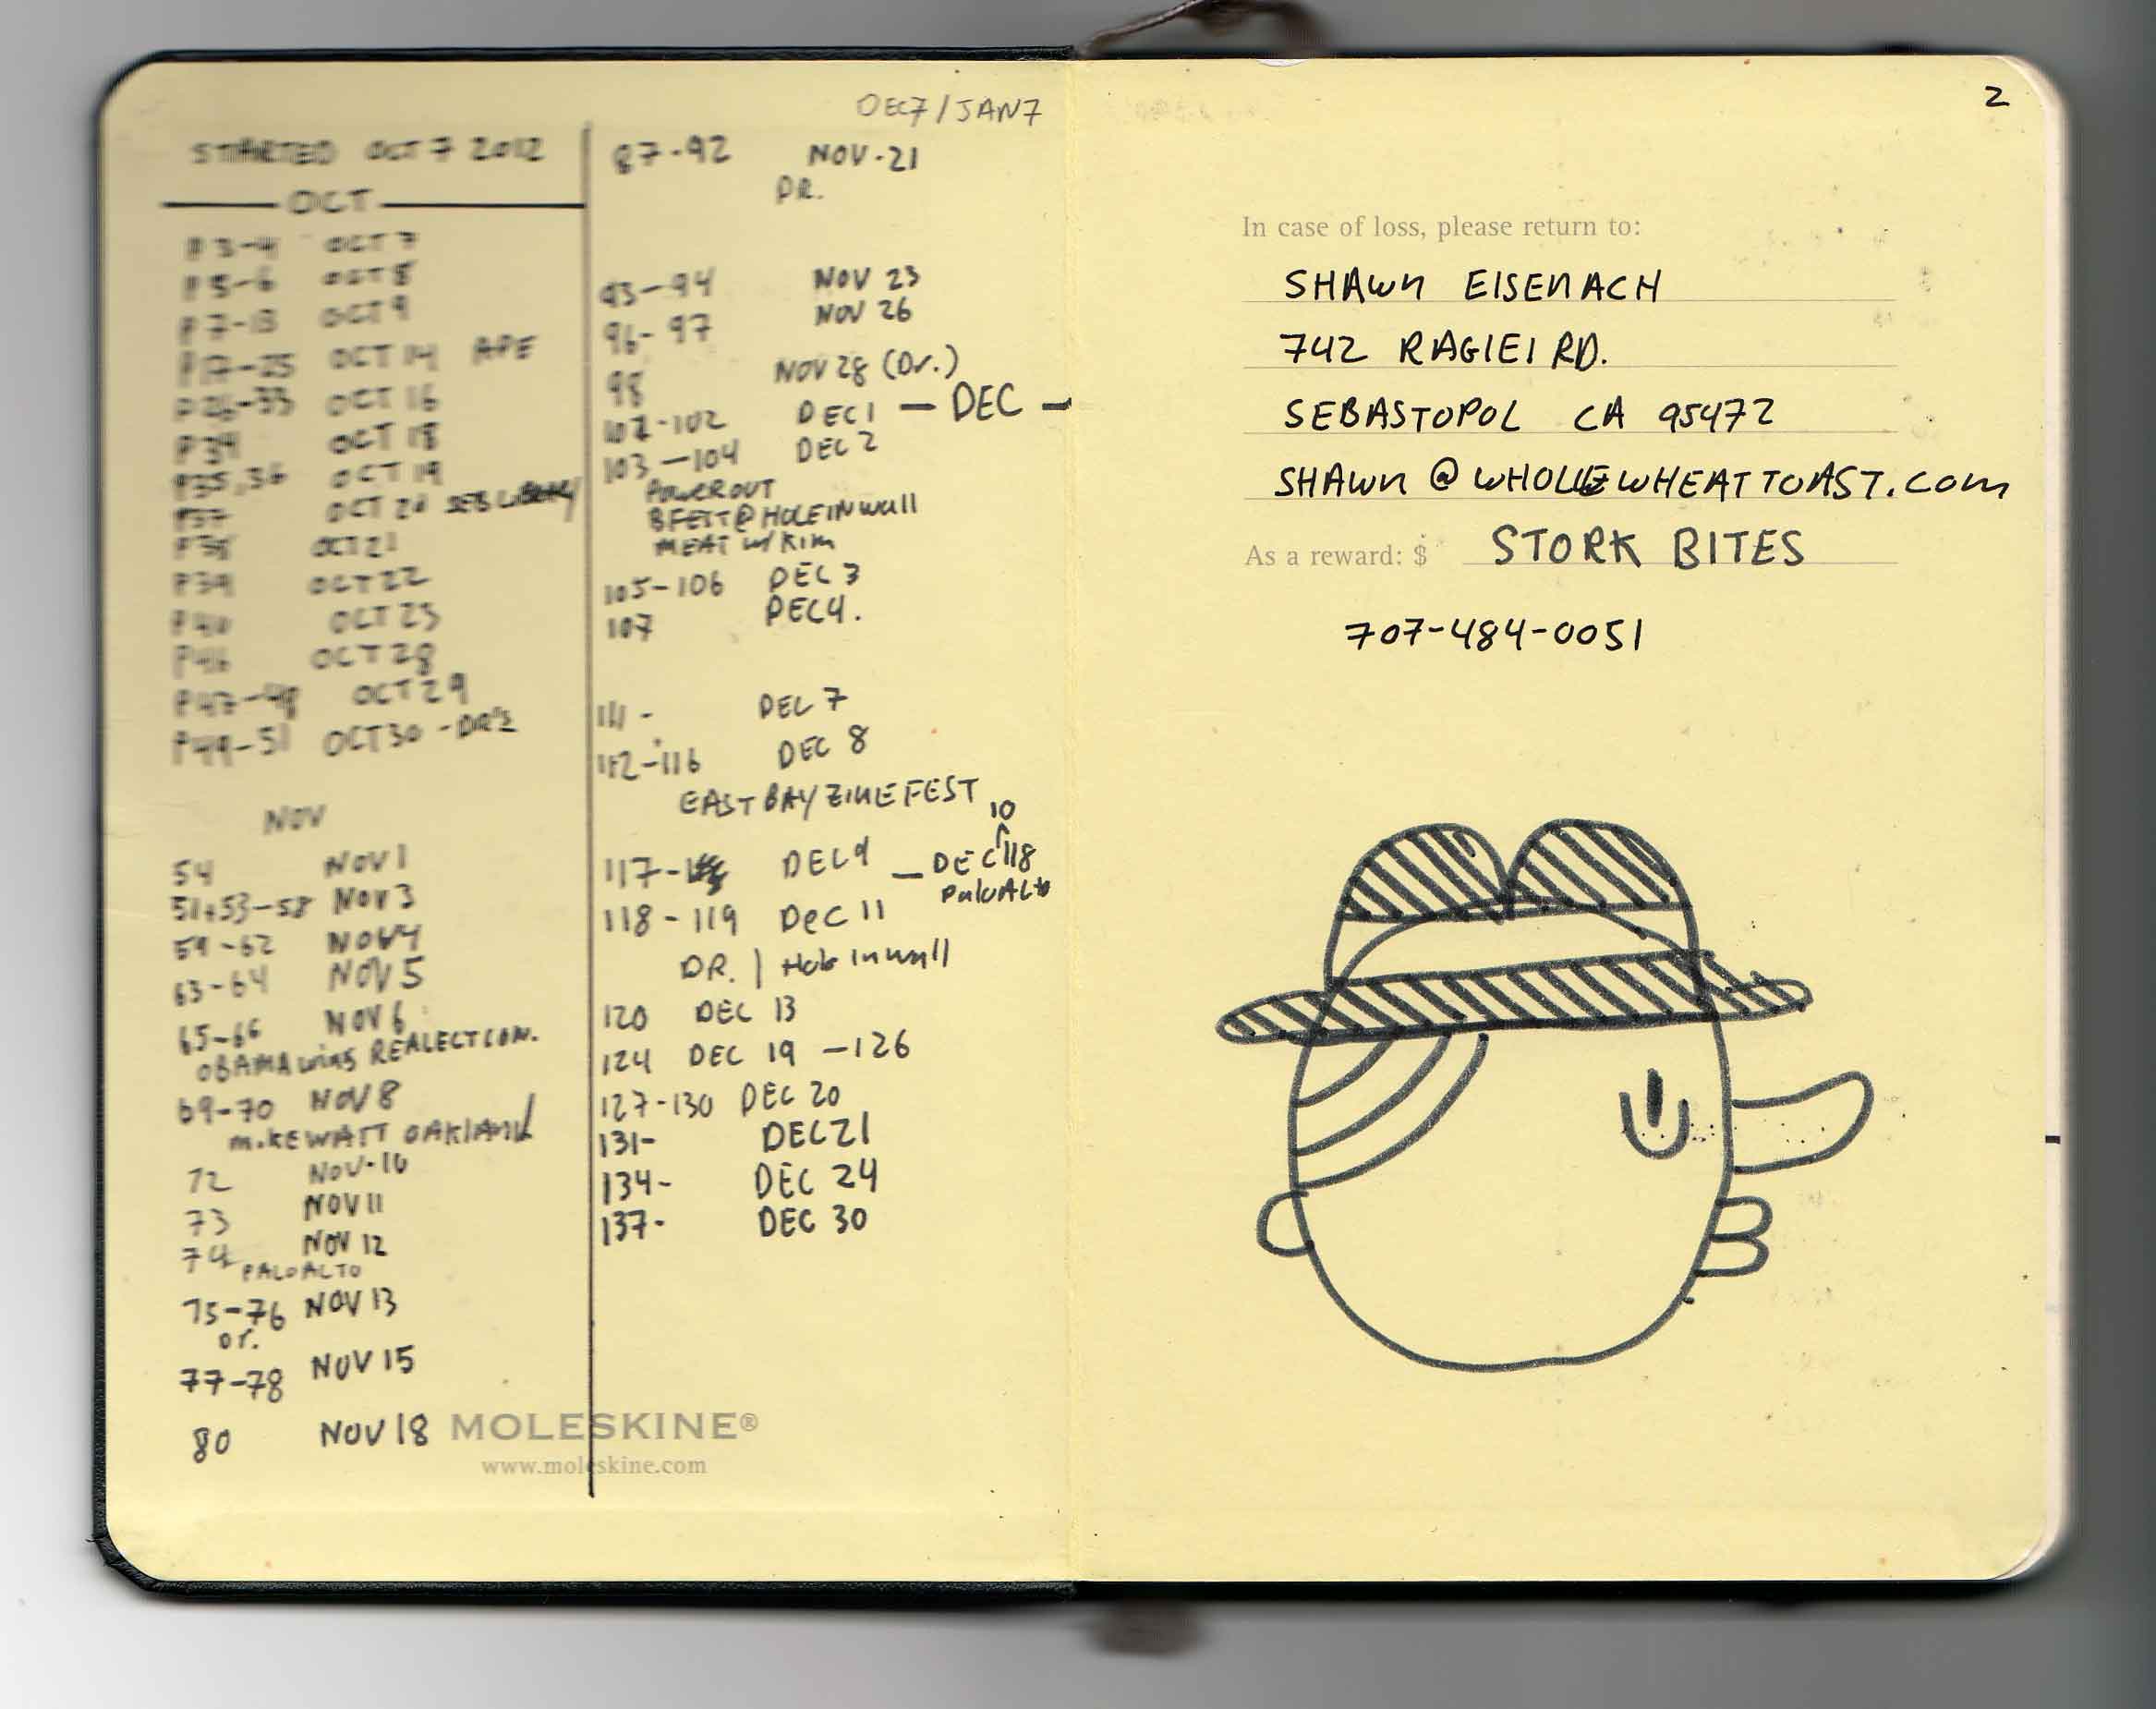 STARTED OCT 7 2012
OCT
P3-4 OCT 7
P5-6 OCT 8
P7-13 OCT 9
P17-25 OCT 14 APE
P26-33 OCT 16
P34 OCT 18
P35,36 OCT 19
P37 OCT 20 SEB LIBRARY
P38 OCT 21
P39 OCT 22
P40 OCT 25
P46 OCT 28
P47-48 OCT 29
P49-51 OCT 30 - DR'S
NOV
54 NOV 1
51+53-58 NOV 3
59-62 NOV 4
63-64 NOV 5
65-66 NOV 6
OBAMA wins REALECTION.
69-70 NOV 8
MIKE WATT OAKLAND
72 NOV-10
73 NOV 11
74 NOV 12
PALO ALTO
75-76 NOV 13
Dr.
77-78 NOV 15
80 NOV 18
MOLESKINE®
www.moleskine.com
DEC7/JAN7
87-92 NOV-21
DR.
93-94 NOV 23
96-97 NOV 26
98 NOV 28 (Dr.)
DEC 1 — DEC —
103-104 DEC 2
POWEROUT
BFEST@HOLE IN Wall
MEAT w/ KIM
105-106 DEC 3
107 DEC 4.
111- DEC 7
112-116 DEC 8
EAST BAY ZINE FEST
10
117- DEC 9 — DEC 118
PaloAlto
118-119 DEC 11
DR. | Hole in wall
120 DEC 13
124 DEC 19 -126
127-130 DEC 20
131- DEC 21
134- DEC 24
137- DEC 30
2
In case of loss, please return to:
SHAWN EISENACH
742 RAGLEI RD.
SEBASTOPOL CA 95472
SHAWN@WHOLEWHEATTOAST.com
As a reward: $ STORK BITES
707-484-0051